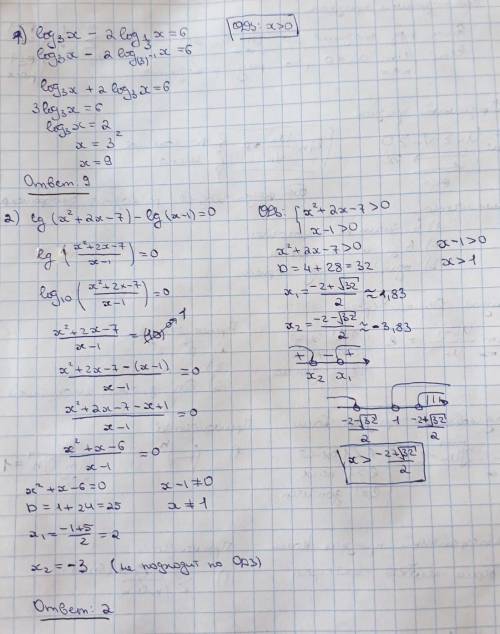 1) log₃x − 2log_{1/3} x = 6
ОДЗ: x>0
log₃x − 2log_{(3)⁻¹} x = 6
log₃x + 2log₃x = 6
3log₃x = 6
log₃x = 2
x = 3²
x = 9
Ответ: 9
2) lg(x²+2x-7) − lg(x-1) = 0
lg((x²+2x-7)/(x-1)) = 0
log₁₀((x²+2x-7)/(x-1)) = 0
(x²+2x-7)/(x-1) = 10⁰ 1
(x²+2x-7-(x-1))/(x-1) = 0
(x²+2x-7-x+1)/(x-1) = 0
(x²+x-6)/(x-1) = 0
x²+x-6=0 x-1≠0
D = 1+24=25 x ≠ 1
x₁ = (-1+5)/2 = 2
x₂ = -3 (не подходит по ОДЗ)
Ответ: 2
ОДЗ: { x²+2x-7>0
x-1>0
x²+2x-7>0 x-1>0
D = 4+28=32 x>1
x₁ = (-2+√32)/2 ≈ 1,83
x₂ = (-2-√32)/2 ≈ -3,83
+ − +
x₂ x₁
(-2-√32)/2 1 (-2+√32)/2
x > (-2+√32)/2